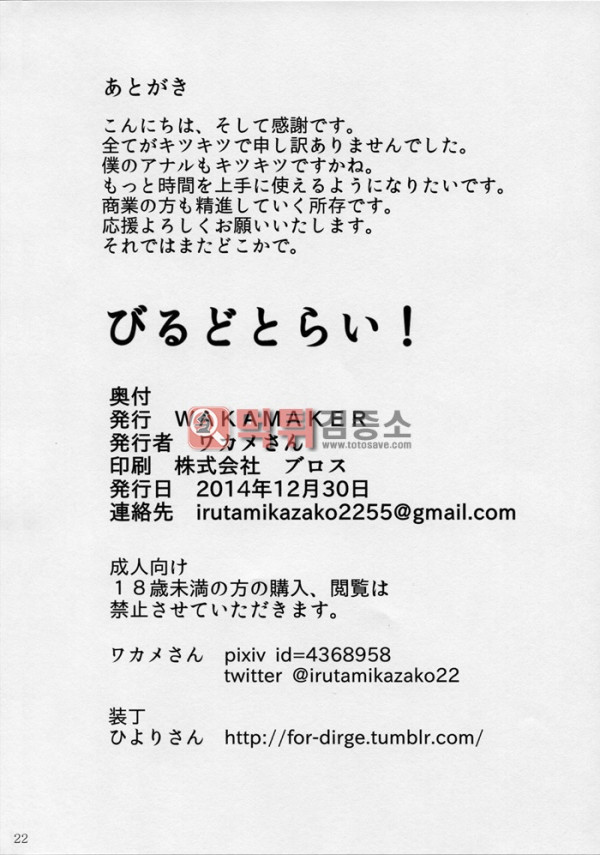 あとがき
こんにちは、そして感謝です。
全てがキツキツで申し訳ありませんでした。
僕のアナルもキツキツですかね。
もっと時間を上手に使えるようになりたいです。
商業の方も精進していく所存です。
応援よろしくお願いいたします。
それではまたどこかで。
びるどとらい！
奥付
発行　WAKAMAKER
発行者　ワカメさん
印刷　株式会社　ブロス
発行日　2014年12月30日
連絡先　irutamikazako2255@gmail.com
먹튀검증소
www.totosave.com
成人向け
１８歳未満の方の購入、閲覧は
禁止させていただきます。
ワカメさん　pixiv id=4368958
twitter @irutamikazako22
装丁
ひよりさん　http://for-dirge.tumblr.com/
22